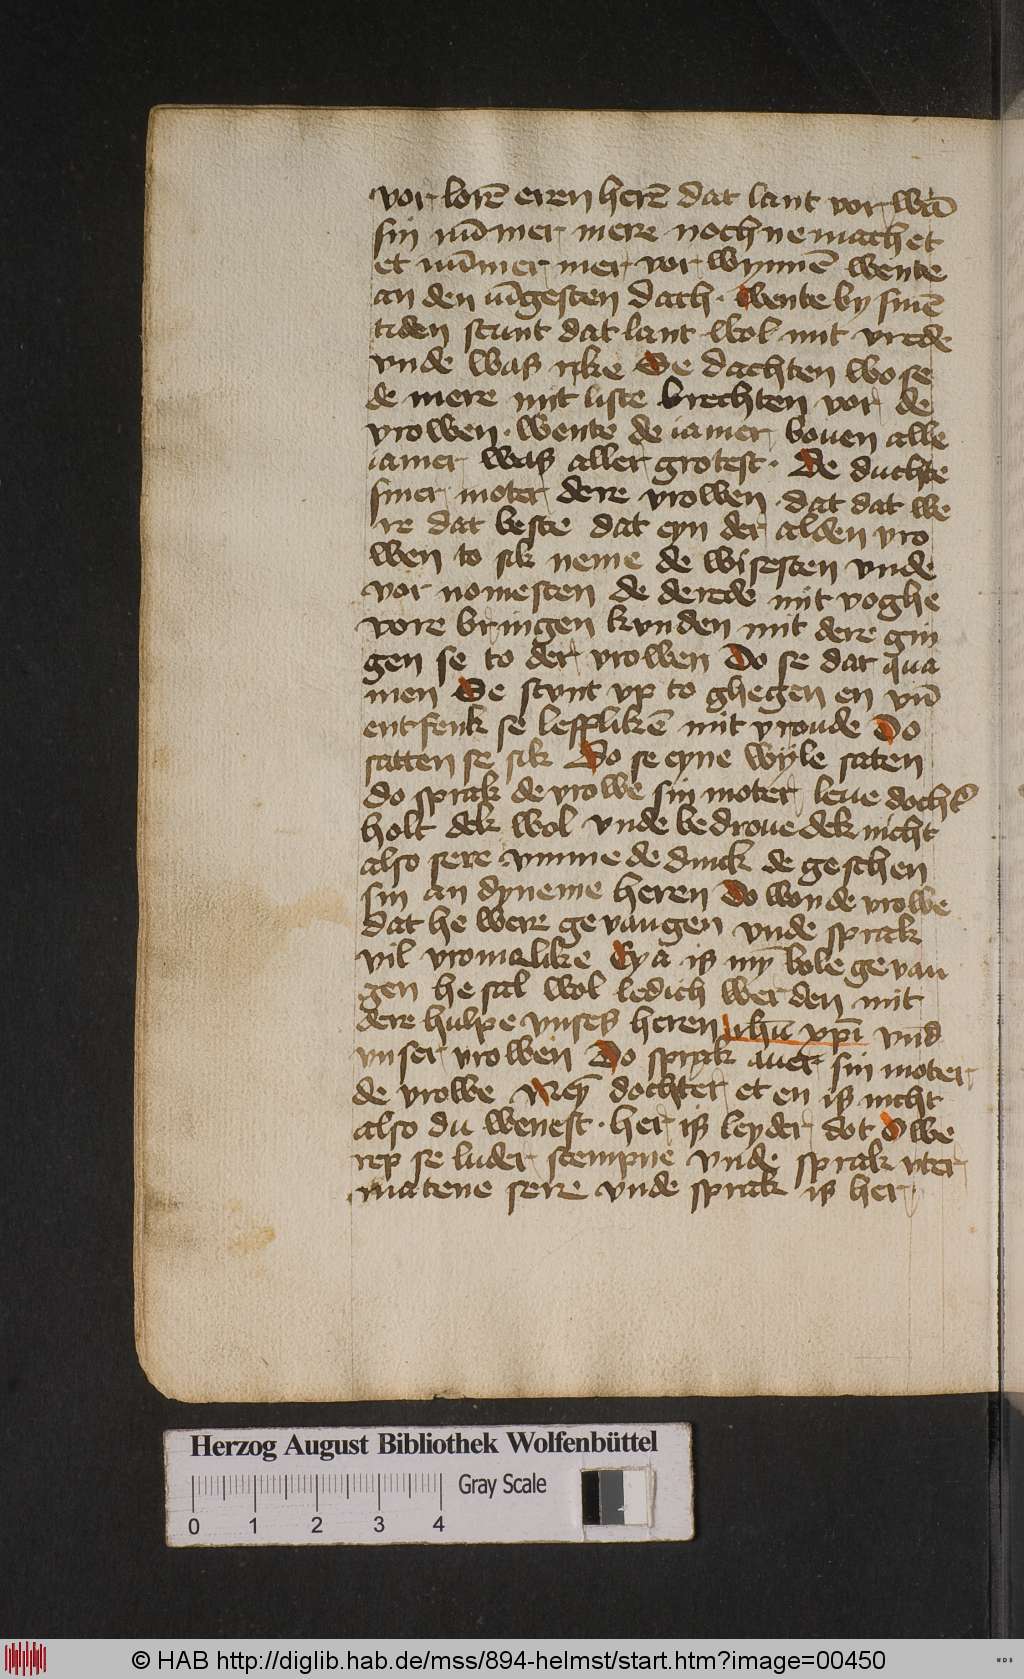 vor lorē eren herē dat lant vor wā
sin nūmer mere noch ne mach et
et nūmer mer vor wynnē wente
an den iūgesten dach · wente by sinē
tiden stunt dat lant wol mit vrede
vnde waß rike Se dachten wo se
de mere mit liste brechten vor de
vrowen · wente de iamer bouen alle
iamer waß aller grotest · De duchte
siner moter dere vrowen dat dat we
re dat beste dat eyn der alden vro
wen to sik neme de wisesten vnde
vor nomesten de de rede mit voghe
vore bringen kvnden mit dere gin
gen se to der vrowen Do se dar qua
men Se stvnt vp to ghegen en vn̄
entfenk se lefflikē mit vroude Do
satten se sik Do se eyne wyle saten
do sprak de vrowe sin moter leue docht᷎
holt dek wol vnde bedroue dek nicht
also sere vmme de dinck de geschen
sin an dyneme heren Do won de vrowe
dat he were gevangen vnde sprak
vil vromelike Eya is mȳ bole gevan
gen he sal wol ledich werden mit
dere hulpe vnses heren ihū xp̄i vnd
vnser vrowen Do sprak auer sin moter
de vrowe Mey dochter et en is nicht
also du wenest · her is leyder dot O we
rep se luder stempne vnde sprak vter
matene sere vnde sprak is her
Herzog August Bibliothek Wolfenbüttel
Gray Scale
0 1 2 3 4
© HAB http://diglib.hab.de/mss/894-helmst/start.htm?image=00450